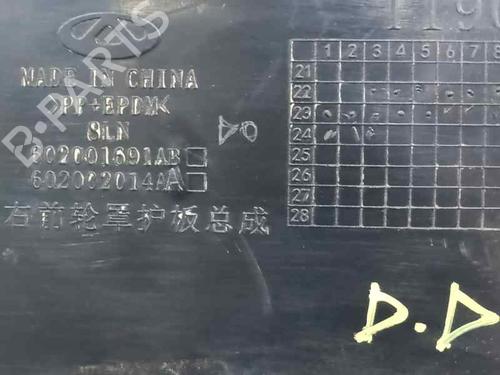 MADE IN CHINA
>PP+EPDM<
SLN
602001691AB
602002014AA
右前轮罩护板总成
1 2 3 4 5 6 7 8
21
22
23
24
25
26
27
28
D.D
B-PARTS